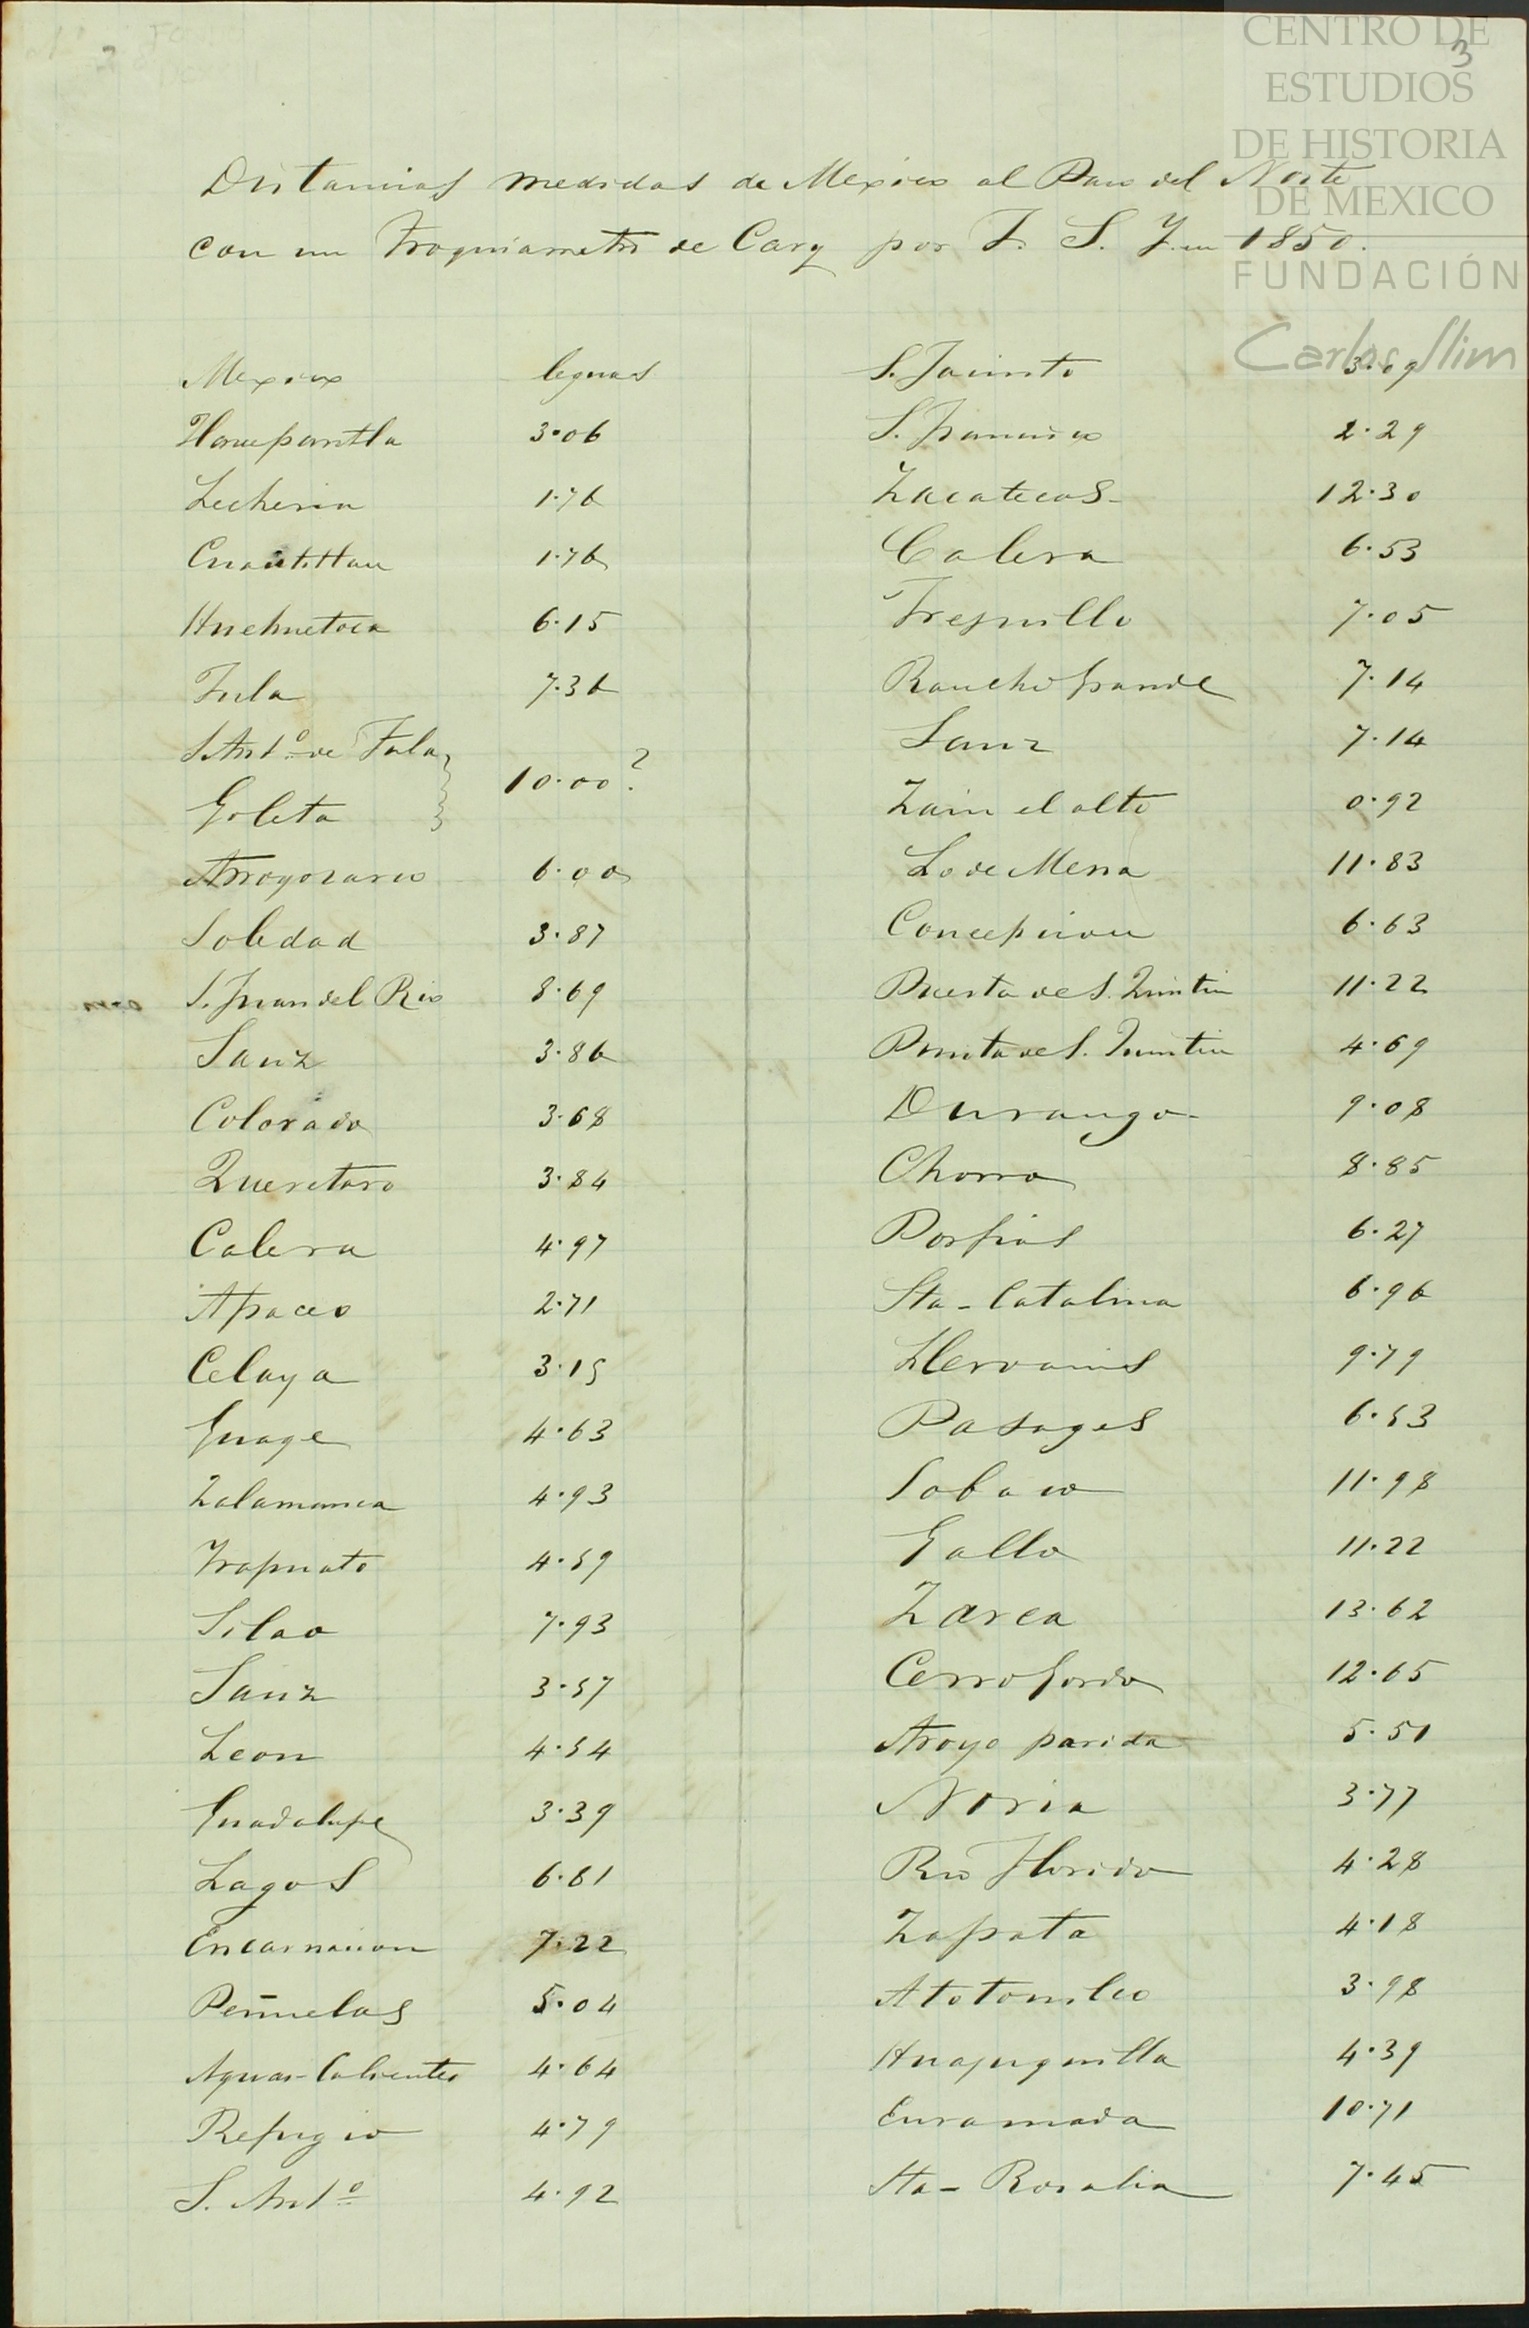 3
CENTRO DE
ESTUDIOS
DE HISTORIA
DE MEXICO
FUNDACIÓN
Carlos Slim
Distancias medidas de Mexico al Paso del Norte
con un Troquiametro de Cary por F. S. Y. en 1850.
Mexico leguas
Tlanepantla 3.06
Lecheria 1.76
Cuautitlan 1.76
Huehuetoca 6.15
Tula 7.36
S. Anto. de Tula
Goleta } 10.00?
Arroyozarco 6.00
Soledad 3.87
S. Juan del Rio 8.69
Sauz 3.86
Colorado 3.68
Queretaro 3.84
Calera 4.97
Apaceo 2.71
Celaya 3.15
Guage 4.63
Zalamanca 4.93
Yrapuato 4.59
Silao 7.93
Sauz 3.57
Leon 4.54
Guadalupe 3.39
Lagos 6.81
Encarnacion 7.22
Peñuelas 5.04
Aguas-Calientes 4.64
Refugio 4.79
S. Anto. 4.92
S. Jacinto 3.09
S. Francisco 2.29
Zacatecas 12.30
Calera 6.53
Fresnillo 7.05
Rancho Grande 7.14
Sauz 7.14
Zain el alto 0.92
Lo de Mena 11.83
Concepcion 6.63
Puerta de S. Quintin 11.22
Punta de S. Quintin 4.69
Durango 9.08
Chorro 8.85
Porfias 6.27
Sta- Catalina 6.96
9.79
Pasages 6.53
Sobaco 11.98
Gallo 11.22
Zarca 13.62
Cerro Gordo 12.65
Arroyo parida 5.51
Noria 3.77
Rio Florido 4.28
Zapata 4.18
Atotonilco 3.98
Huajuquilla 4.39
Enramada 10.71
Sta- Rosalia 7.45